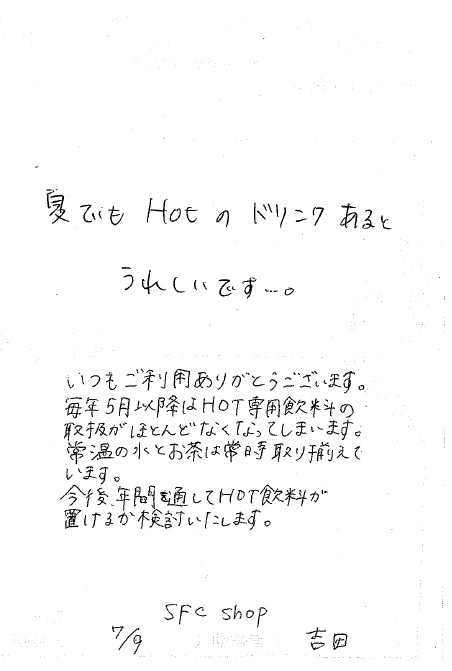 夏でも Hotの ドリンク あると
うれしいです…。
いつもご利用ありがとうございます。
毎年5月以降はHOT専用飲料の
取扱がほとんどなくなってしまいます。
常温の水とお茶は常時取り揃えて
います。
今後、年間を通してHOT飲料が
置けるか検討いたします。
SFC shop
7/9 吉田